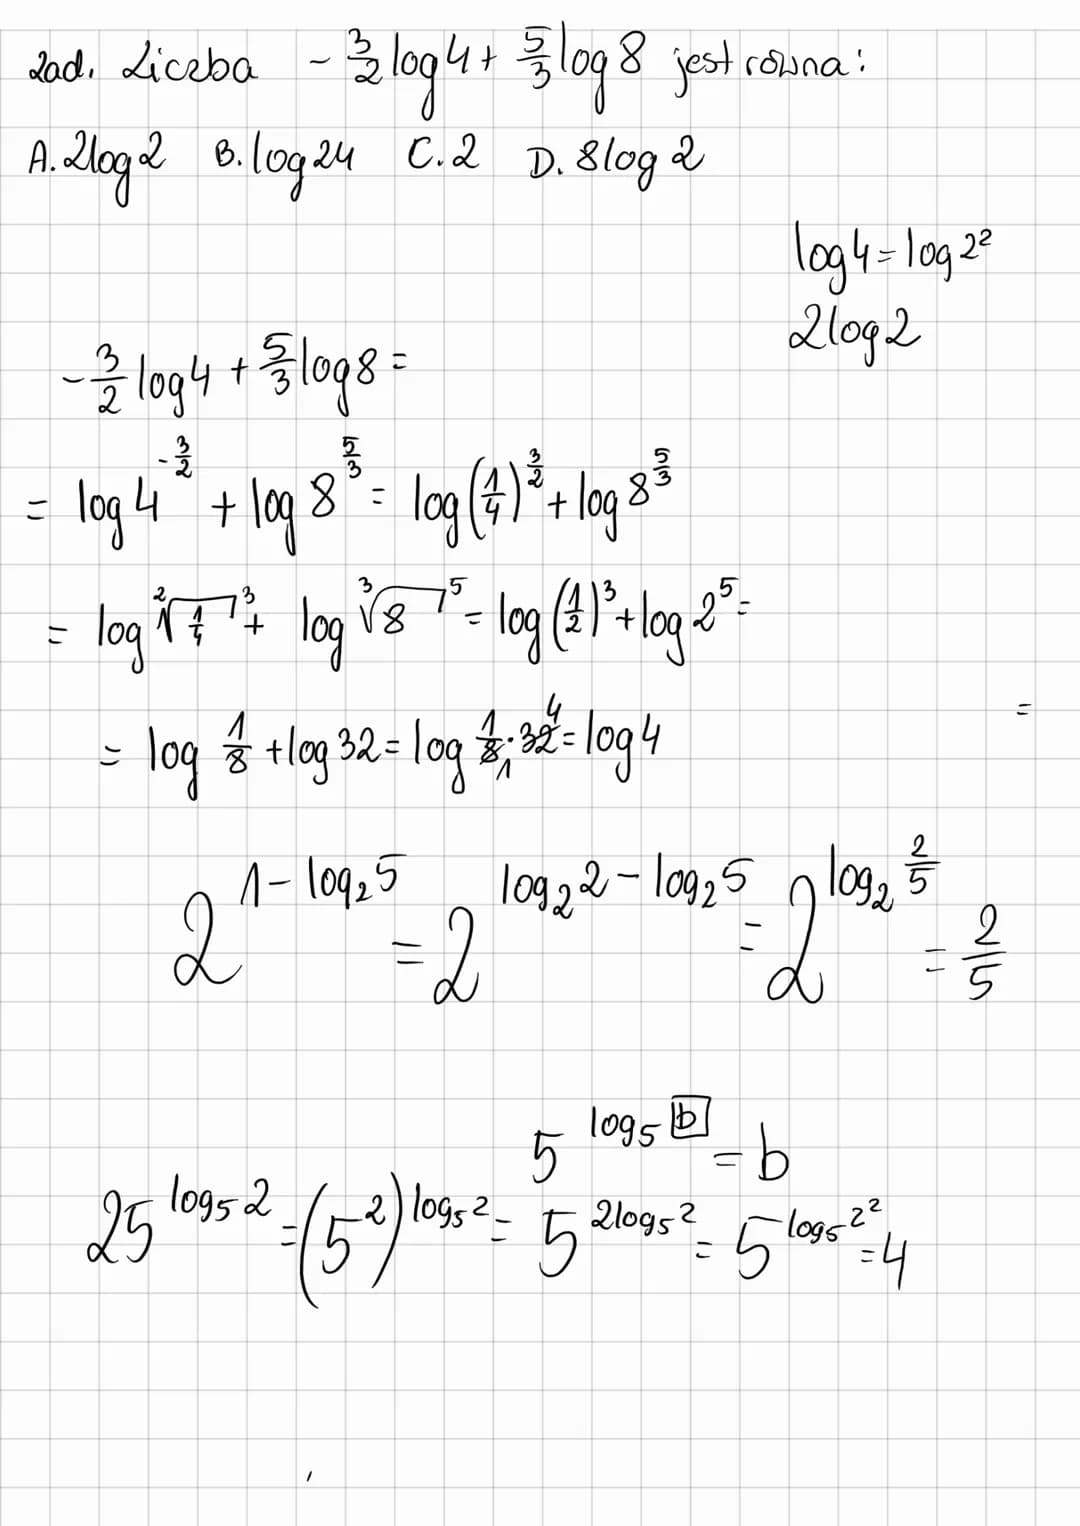 Zad. Liczba -3/2 log 4 + 5/3 log 8 jest równa:
A. 2log 2 B. log 24 C. 2 D. 8log 2
log 4 = log 2²
2log 2
-3/2 log 4 + 5/3 log 8 =
= log 4^(-3/2) + log 8^(5/3) = log (1/4)^(3/2) + log 8^(5/3)
= log ²√(1/4)³ + log ³√8⁵ = log (1/2)³ + log 2⁵ =
=
= log 1/8 + log 32 = log 1/8₁ · 32⁴ = log 4
2^(1 - log₂5) = 2^(log₂2 - log₂5) = 2^(log₂ 2/5) = 2/5
5^(log₅ b) = b
25^(log₅2) = (5²)^(log₅2) = 5^(2log₅2) = 5^(log₅2²) = 4